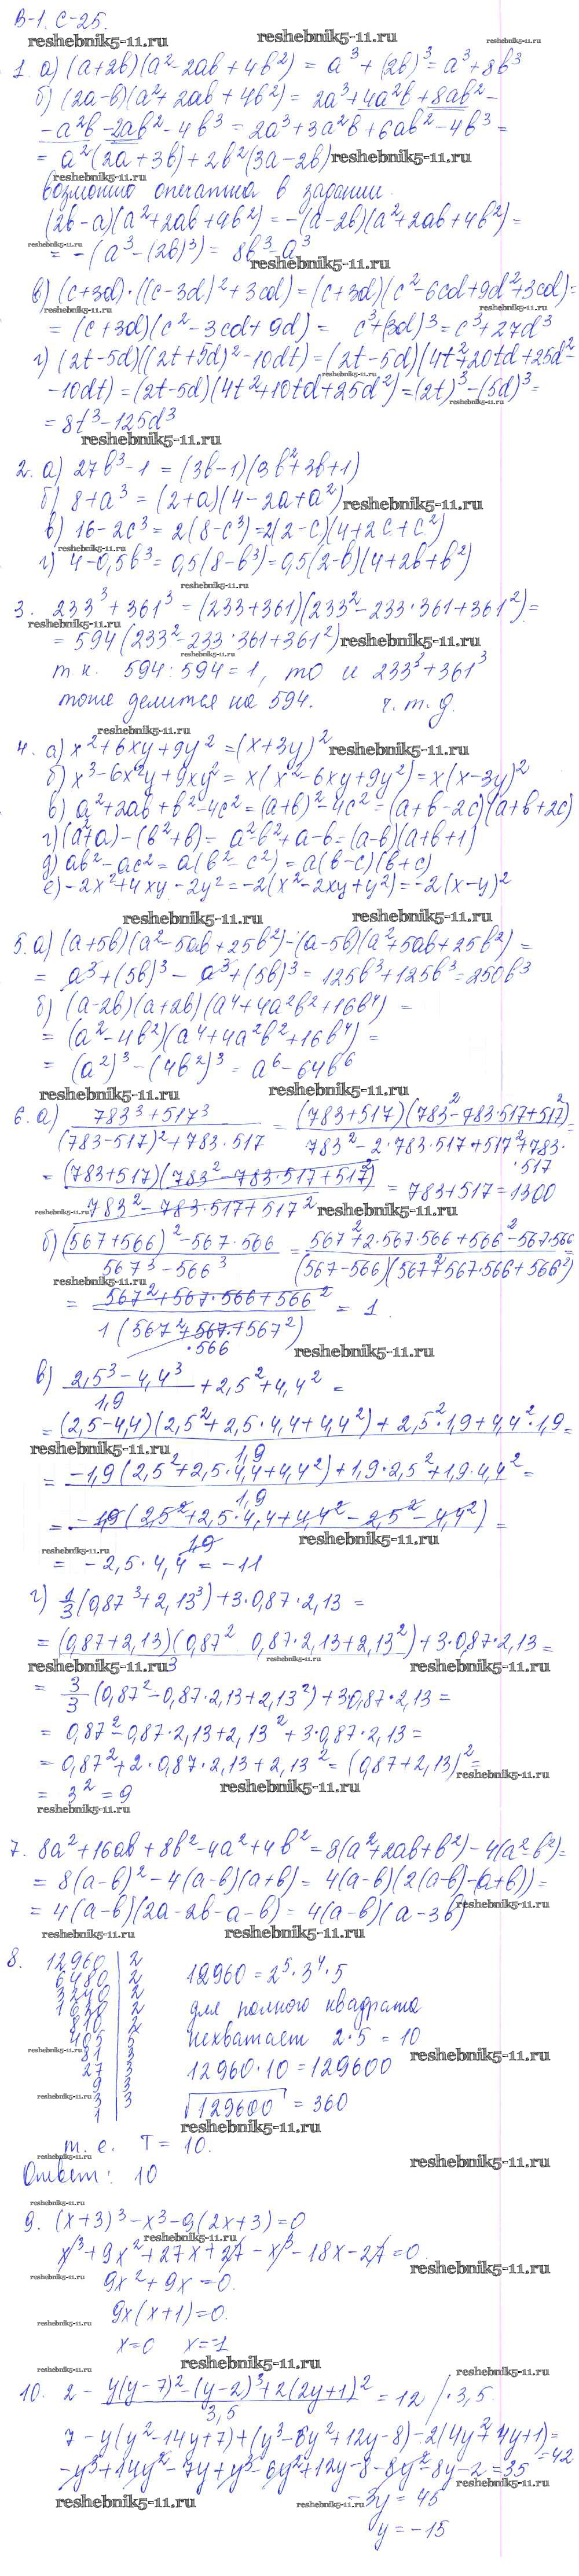 В-1. С-25.
reshebnik5-11.ru reshebnik5-11.ru reshebnik5-11.ru
1. а) (a+2b)(a²-2ab+4b²) = a³+(2b)³ = a³+8b³
б) (2a-b)(a²+2ab+4b²) = 2a³+4a²b+8ab²-
-a²b-2ab²-4b³ = 2a³+3a²b+6ab²-4b³ =
= a²(2a+3b)+2b²(3a-2b) reshebnik5-11.ru
reshebnik5-11.ru
возможно опечатка в задании.
(2b-a)(a²+2ab+4b²) = -(a-2b)(a²+2ab+4b²) =
reshebnik5-11.ru
= -(a³-(2b)³) = 8b³-a³
reshebnik5-11.ru
в) (c+3d)·((c-3d)²+3cd) = (c+3d)(c²-6cd+9d²+3cd) =
reshebnik5-11.ru reshebnik5-11.ru
= (c+3d)(c²-3cd+9d) = c³+(3d)³ = c³+27d³
г) (2t-5d)((2t+5d)²-10dt) = (2t-5d)(4t²+20td+25d²-
reshebnik5-11.ru
-10dt) = (2t-5d)(4t²+10td+25d²) = (2t)³-(5d)³ =
reshebnik5-11.ru
= 8t³-125d³
reshebnik5-11.ru
2. а) 27b³-1 = (3b-1)(3b²+3b+1)
б) 8+a³ = (2+a)(4-2a+a²) reshebnik5-11.ru
в) 16-2c³ = 2(8-c³) = 2(2-c)(4+2c+c²)
reshebnik5-11.ru
г) 4-0,5b³ = 0,5(8-b³) = 0,5(2-b)(4+2b+b²)
3. 233³+361³ = (233+361)(233²-233·361+361²) =
reshebnik5-11.ru
= 594(233²-233·361+361²) reshebnik5-11.ru
reshebnik5-11.ru
т.к. 594:594 = 1, то и 233³+361³
тоже делится на 594. ч.т.д.
reshebnik5-11.ru
4. а) x²+6xy+9y² = (x+3y)² reshebnik5-11.ru
б) x³-6x²y+9xy² = x(x²-6xy+9y²) = x(x-3y)²
в) a²+2ab+b²-4c² = (a+b)²-4c² = (a+b-2c)(a+b+2c)
г) (a²+a)-(b²+b) = a²b²+a-b = (a-b)(a+b+1)
д) ab²-ac² = a(b²-c²) = a(b-c)(b+c)
е) -2x²+4xy-2y² = -2(x²-2xy+y²) = -2(x-y)²
reshebnik5-11.ru reshebnik5-11.ru
5. а) (a+5b)(a²-5ab+25b²)-(a-5b)(a²+5ab+25b²) =
= a³+(5b)³-a³+(5b)³ = 125b³+125b³ = 250b³
б) (a-2b)(a+2b)(a⁴+4a²b²+16b⁴) =
= (a²-4b²)(a⁴+4a²b²+16b⁴) =
= (a²)³-(4b²)³ = a⁶-64b⁶
reshebnik5-11.ru reshebnik5-11.ru
6. а) 783³+517³ = (783+517)(783²-783·517+517²) =
(783-517)²+783·517 783²-2·783·517+517²+783·
·517
= (783+517)(783²-783·517+517²) = 783+517 = 1300
783²-783·517+517²
reshebnik5-11.ru reshebnik5-11.ru
б) (567+566)²-567·566 = 567²+2·567·566+566²-567·566 =
567³-566³ (567-566)(567²+567·566+566²)
reshebnik5-11.ru
= 567²+567·566+566² = 1.
1(567²+567·+567²)
·566
reshebnik5-11.ru
в) 2,5³-4,4³ + 2,5²+4,4² =
1,9
= (2,5-4,4)(2,5²+2,5·4,4+4,4²)+2,5²·1,9+4,4²·1,9 =
reshebnik5-11.ru 1,9
= -1,9(2,5²+2,5·4,4+4,4²)+1,9·2,5²+1,9·4,4² =
1,9
= -1,9(2,5²+2,5·4,4+4,4²-2,5²-4,4²) =
1,9 reshebnik5-11.ru
= -2,5·4,4 = -11
reshebnik5-11.ru
г) 1/3(0,87³+2,13³)+3·0,87·2,13 =
= (0,87+2,13)(0,87² 0,87·2,13+2,13²)+3·0,87·2,13 =
reshebnik5-11.ru 3 reshebnik5-11.ru reshebnik5-11.ru
= 3/3(0,87²-0,87·2,13+2,13²)+3·0,87·2,13 =
= 0,87²-0,87·2,13+2,13²+3·0,87·2,13 =
= 0,87²+2·0,87·2,13+2,13² = (0,87+2,13)² =
reshebnik5-11.ru
= 3² = 9 reshebnik5-11.ru
reshebnik5-11.ru
7. 8a²+16ab+8b²-4a²+4b² = 8(a²+2ab+b²)-4(a²-b²) =
= 8(a-b)²-4(a-b)(a+b) = 4(a-b)(2(a-b)-(a+b)) =
reshebnik5-11.ru
= 4(a-b)(2a-2b-a-b) = 4(a-b)(a-3b)
reshebnik5-11.ru reshebnik5-11.ru
8. 12960 | 2
6480 | 2 12960 = 2⁵·3⁴·5
3240 | 2
1620 | 2 для полного квадрата
810 | 2
405 | 5 нехватает 2·5 = 10
reshebnik5-11.ru 81 | 3 reshebnik5-11.ru
27 | 3 12960·10 = 129600
9 | 3
reshebnik5-11.ru 3 | 3 √129600 = 360
1
reshebnik5-11.ru
т.е. T = 10.
reshebnik5-11.ru reshebnik5-11.ru
Ответ: 10
reshebnik5-11.ru
9. (x+3)³-x³-9(2x+3) = 0
reshebnik5-11.ru
x³+9x²+27x+27-x³-18x-27 = 0
reshebnik5-11.ru reshebnik5-11.ru
9x²+9x = 0.
9x(x+1) = 0.
reshebnik5-11.ru
x=0 x=-1
reshebnik5-11.ru
reshebnik5-11.ru reshebnik5-11.ru
10. 2 - y(y-7)²-(y-2)³+2(2y+1)² = 12 /·3,5
3,5
7-y(y²-14y+7)+(y³-6y²+12y-8)-2(4y²+4y+1) =
= 42
-y³+14y²-7y+y³-6y²+12y-8-8y²-8y-2 = 35
reshebnik5-11.ru
-3y = 45
reshebnik5-11.ru reshebnik5-11.ru
y = -15